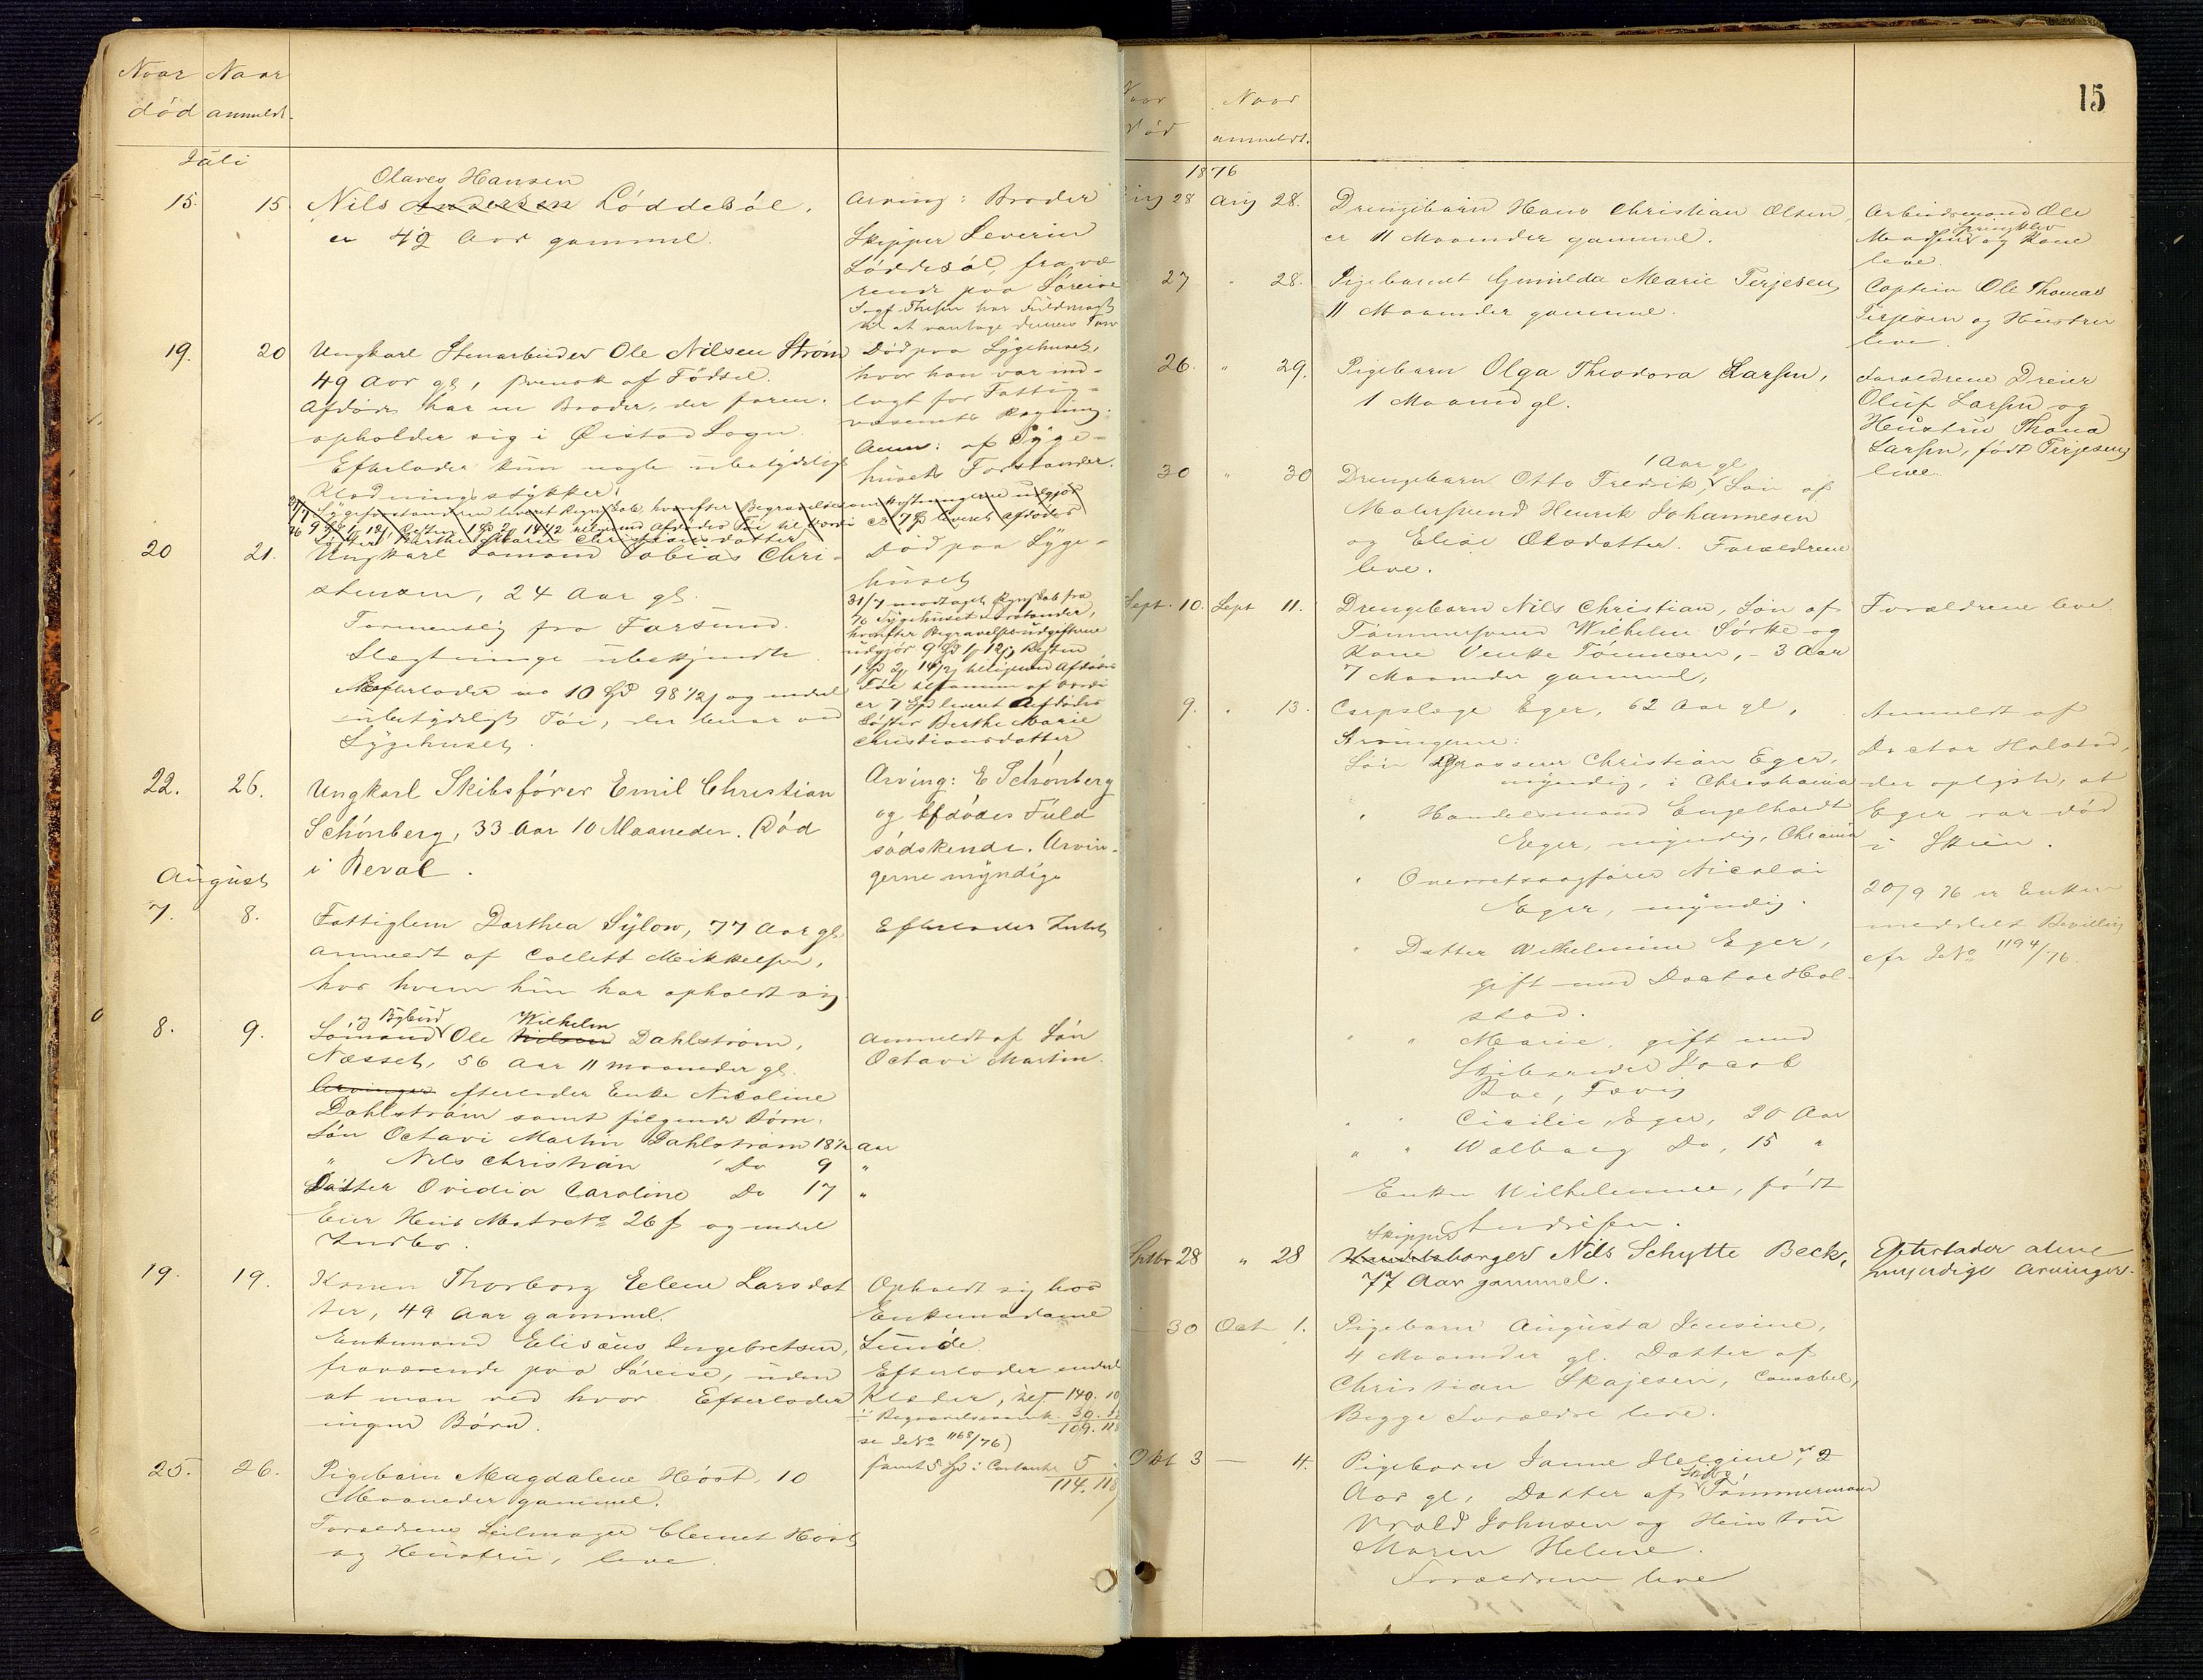 Naar Naar
død anmeldt.
Juli
Olaves Hansen
15. 15. Nils Andersen Löddesöl,
er 42 Aar gammel.
Arving: Broder
Skipper Severin
Löddesöl, fravæ
rende paa Söreise
har Fuldmagt
til at vantage dennes Tarv
19. 20 Ungkarl Stenarbeider Ole Nilsen Strøm
49 Aar gl, svensk af Födsel.
Afdöde har en Broder, der foren.
opholder sig i Øiestad Sogn
Efterlader kun nogle ubetydelige
Klædningsstykker.
Död paa Sygehuset,
hvor han var ind-
lagt for Fattig-
væsenets Regning.
Anm: af Syge-
husets Forstander.
20 21. Ungkarl Sömand Tobias Chri-
stensen, 24 Aar gl.
Formentlig fra Farsund.
Slægtninge ubekjendte
Efterlader 10 Spd 98 1/2 og endel
ubetydeligt Töi, der beror ved
Sygehuset.
Död paa Syge-
huset
31/7 modtaget Regnskab fra
76 Sygehusets Forstander,
hvorefter Begravelsesudgifterne
udgjør 9 Spd 1 12 Resten
1 Spd 2 14 1/2 tilligemed Afdödes
Töi tilsammen af Værdi
er 7 Spd leveret Afdödes
Söster Berthe Marie
Christiansdatter
22. 26. Ungkarl Skibsförer Emil Christian
Schönberg, 33 Aar 10 Maaneder. Död
i Reval.
Arving: E Schönberg
og Afdödes Fuld
södskende. Arvin-
gerne myndige
August
7. 8. Fattiglem Dorthea Sylow, 77 Aar gl.
Anmeldt af Collett Mikkelsen,
hos hvem hun har opholdt sig.
Efterlader Intet
og Bÿbud Wilhelm
8. 9. Sömand Ole Nilsen Dahlström,
Næsset, 56 Aar 11 maaneder gl.
Arvinger efterlader Enke Nicoline
Dahlström samt fölgende Börn.
Sön Octavi Martin Dahlström 18 1/2 Aar
" Nils Christian Do 9 "
Datter Ovidia Caroline Do 17 "
Eier Huus MatrNo 26f og endel
Indbo.
Anmeldt af Sön
Octavi Martin.
19. 19. Konen Thorborg Eelene Larsdat
ter, 49 Aar gammel.
Enkemand Elisæus Ingebretsen,
fraværende paa Söreise, uden
at man ved hvor. Efterlader
ingen Börn.
Opholdt sig hos
Enkemadame
Lunde.
Efterlader endel
Klæder, 140. 10
Begravelsesomk. 30.
109. 118
se JNo 1168/76)
samt 5 Spd i Contante 5
114. 118
25. 26. Pigebarn Magdalene Höst, 10
Maaneder gammel.
Forældrene Seilmager Clemet Höst
og Hustru, leve.
15
Naar Naar
død anmeldt.
1876
Aug 28 Aug 28. Drengebarn Hans Christian Olsen,
er 11 Maaneder gammel.
Arbeidsmand Ole
Madsen og Kone
leve.
27 " 28. Pigebarnet Gunilda Marie Terjesen,
11 Maaneder gammel.
Captein Ole Thomas
Terjesen og Hustru
leve.
26. " 29. Pigebarn Olga Theodora Larsen,
1 Maaned gl.
Foreldrene Dreier
Oluf Larsen og
Hustru Thona
Larsen, födt Terjesen,
leve.
1 Aar gl
30 " 30 Drengebarn Otto Fredrik, Sön af
Malersvend Henrik Johannesen
og Elise Olsdatter. Forældrene
leve.
Sept. 10. Sept 11. Drengebarn Nils Christian, Sön af
Tömmersvend Wilhelm Sörke og
Kone Venke Tönnesen, - 3 Aar
7 Maaneder gammel,
Forældrene leve.
9. " 13. Corpslæge Eger, 62 Aar gl,
Arvingerne:
Sön Grosserer Christian Eger,
myndig, i Christiania
" Handelsmand Engelhardt
Eger, myndig, Chrania
" Overretssagförer Nicolai
Eger, myndig.
" Datter Wilhelmine Eger,
gift med Doctor Hol-
stad.
" " Marie, gift med
Skibsreder Jacob
Boe, Færvig
" " Cicilie Eger, 20 Aar
" " Walborg Do, 15 "
Enken Wilhelmine, födt
Andresen.
Anmeldt af
Doctor Holstad,
der oplyste, at
Eger var död
i Skien.
20/9 76 er Enken
meddelt Bevilling
cfr JNo 1194/76.
Skipper
Septbr 28 " 28 Nils Schytte Beck,
77 Aar gammel.
Efterlader alene
myndige Arvinger.
30 Oct 1. Pigebarn Augusta Jensine,
4 Maaneder gl. Datter af
Christian Skajesen, Constabel,
Begge Forældre leve.
Okt 3 — 4. Pigebarn Janne Helgine, 2
Aar gl, Datter af Skibs Tömmermand
Wrold Johnsen og Hustru
Maren Helene.
Forældrene leve